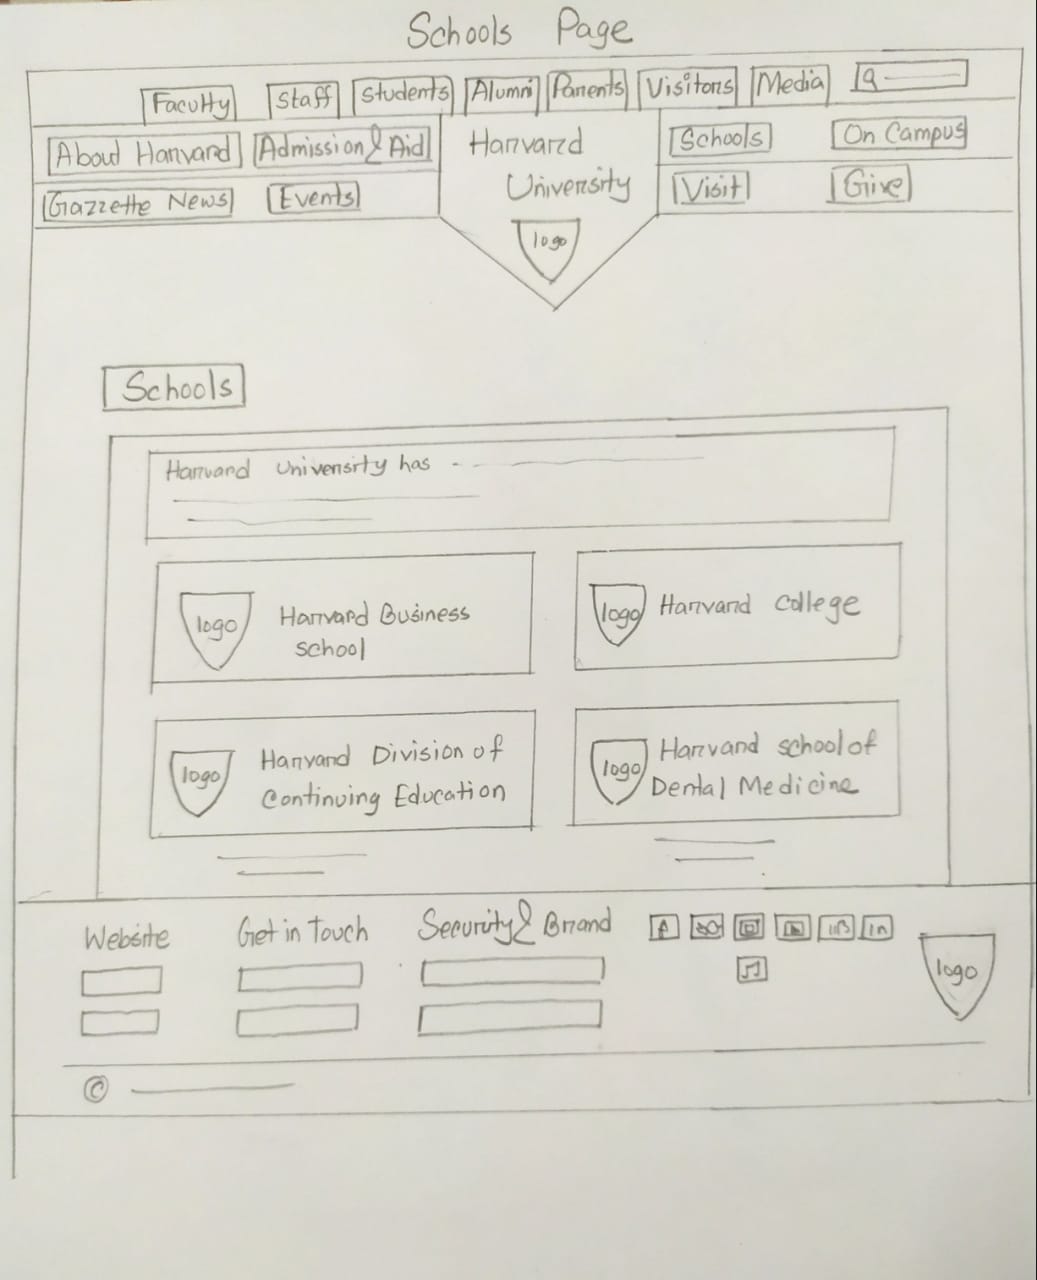 Schools Page
Faculty Staff Students Alumni Parents Visitors Media
About Harvard Admission & Aid Harvard University Schools On Campus
Gazzette News Events Visit Give
logo
Schools
Harvard University has
logo Harvard Business school
logo Harvard College
logo Harvard Division of Continuing Education
logo Harvard school of Dental Medicine
Website Get in Touch Security & Brand
in
logo
©